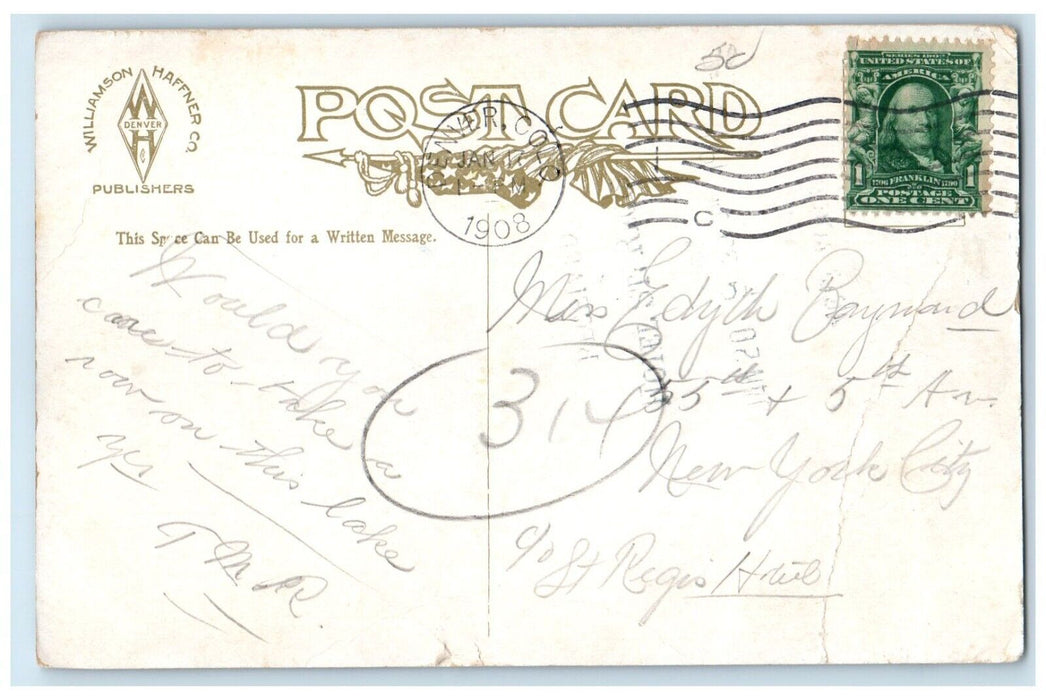 WILLIAMSON HAFFNER CO.
W H
DENVER
Co
PUBLISHERS
POST CARD
50
DENVER, COLO
JAN
M
1908
C
SERIES 1902
UNITED STATES OF
AMERICA
1 1706 FRANKLIN 1790 1
POSTAGE
ONE CENT
This Space Can Be Used for a Written Message.
Would you
care to take a
row on this lake
yes
T M R.
314
Miss Edyth Baynard
55th + 5th Av.
New York City
c/o St Regis Hotel